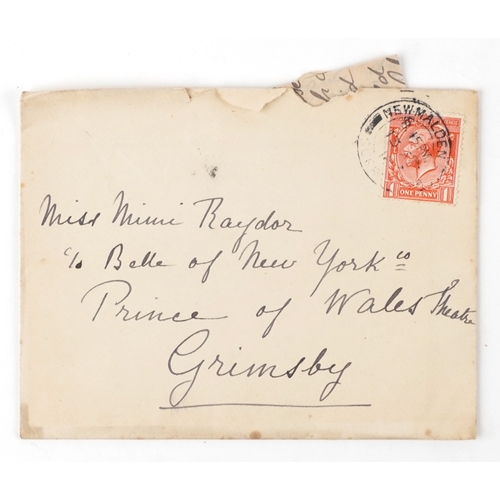 NEW MALDEN
ONE PENNY
1 1
Miss Mimi Raydor
c/o Belle of New York Co
Prince of Wales Theatre
Grimsby